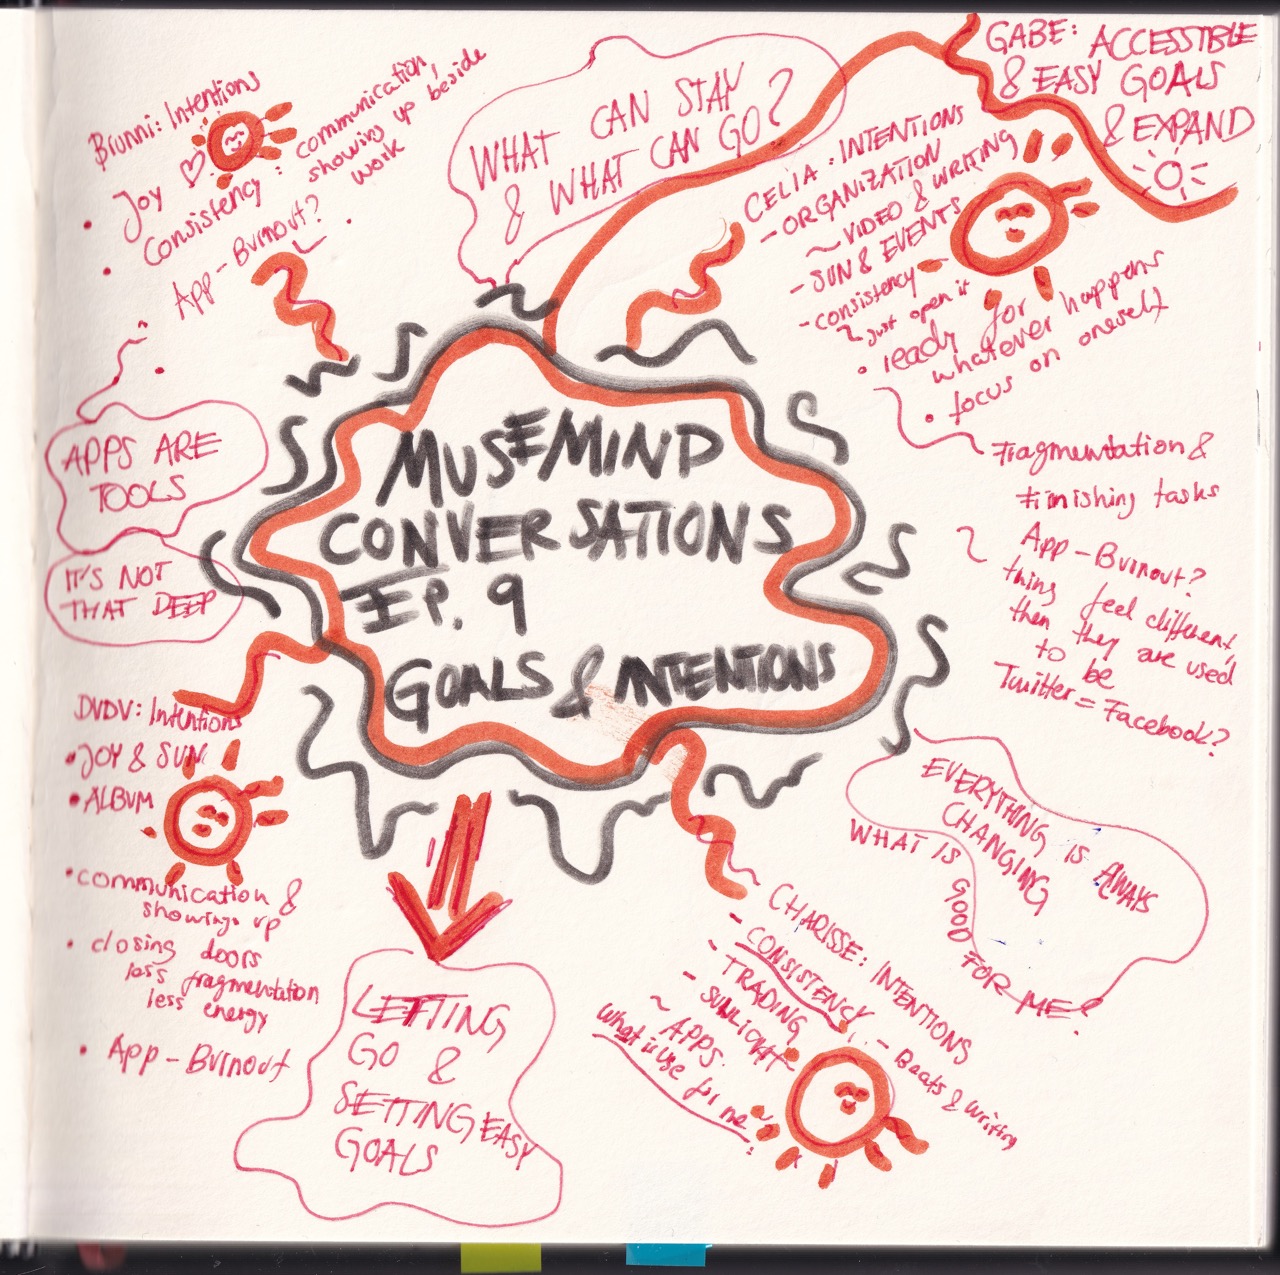 Brunni: Intentions
• Joy
• Consistency: communication,
showing up beside
work
App-Burnout?
WHAT CAN STAY
& WHAT CAN GO?
GABE: ACCESSIBLE
& EASY GOALS
& EXPAND
CELIA: INTENTIONS
- ORGANIZATION
~ VIDEO & WRITING
- SUN & EVENTS
- consistency -
~ just open it
• ready for
whatever happens
• focus on oneself
Fragmentation &
finishing tasks
~ App-Burnout?
thing feel different,
then they are use'd
to be
Twitter = Facebook?
APPS ARE
TOOLS
IT'S NOT
THAT DEEP
MUSEMIND
CONVERSATIONS
EP. 9
GOALS & INTENTIONS
DVDV: Intentions
• JOY & SUN
• ALBUM
• communication &
showing up
• closing doors
less fragmentation
less energy
• App-Burnout
LETTING
GO &
SETTING EASY
GOALS
EVERYTHING IS AWAYS
CHANGING
WHAT IS GOOD FOR ME?
CHARISSE: INTENTIONS
- CONSISTENCY, - Beats & writing
- TRADING
- SUNLIGHT
~ APPS.
what is use for me